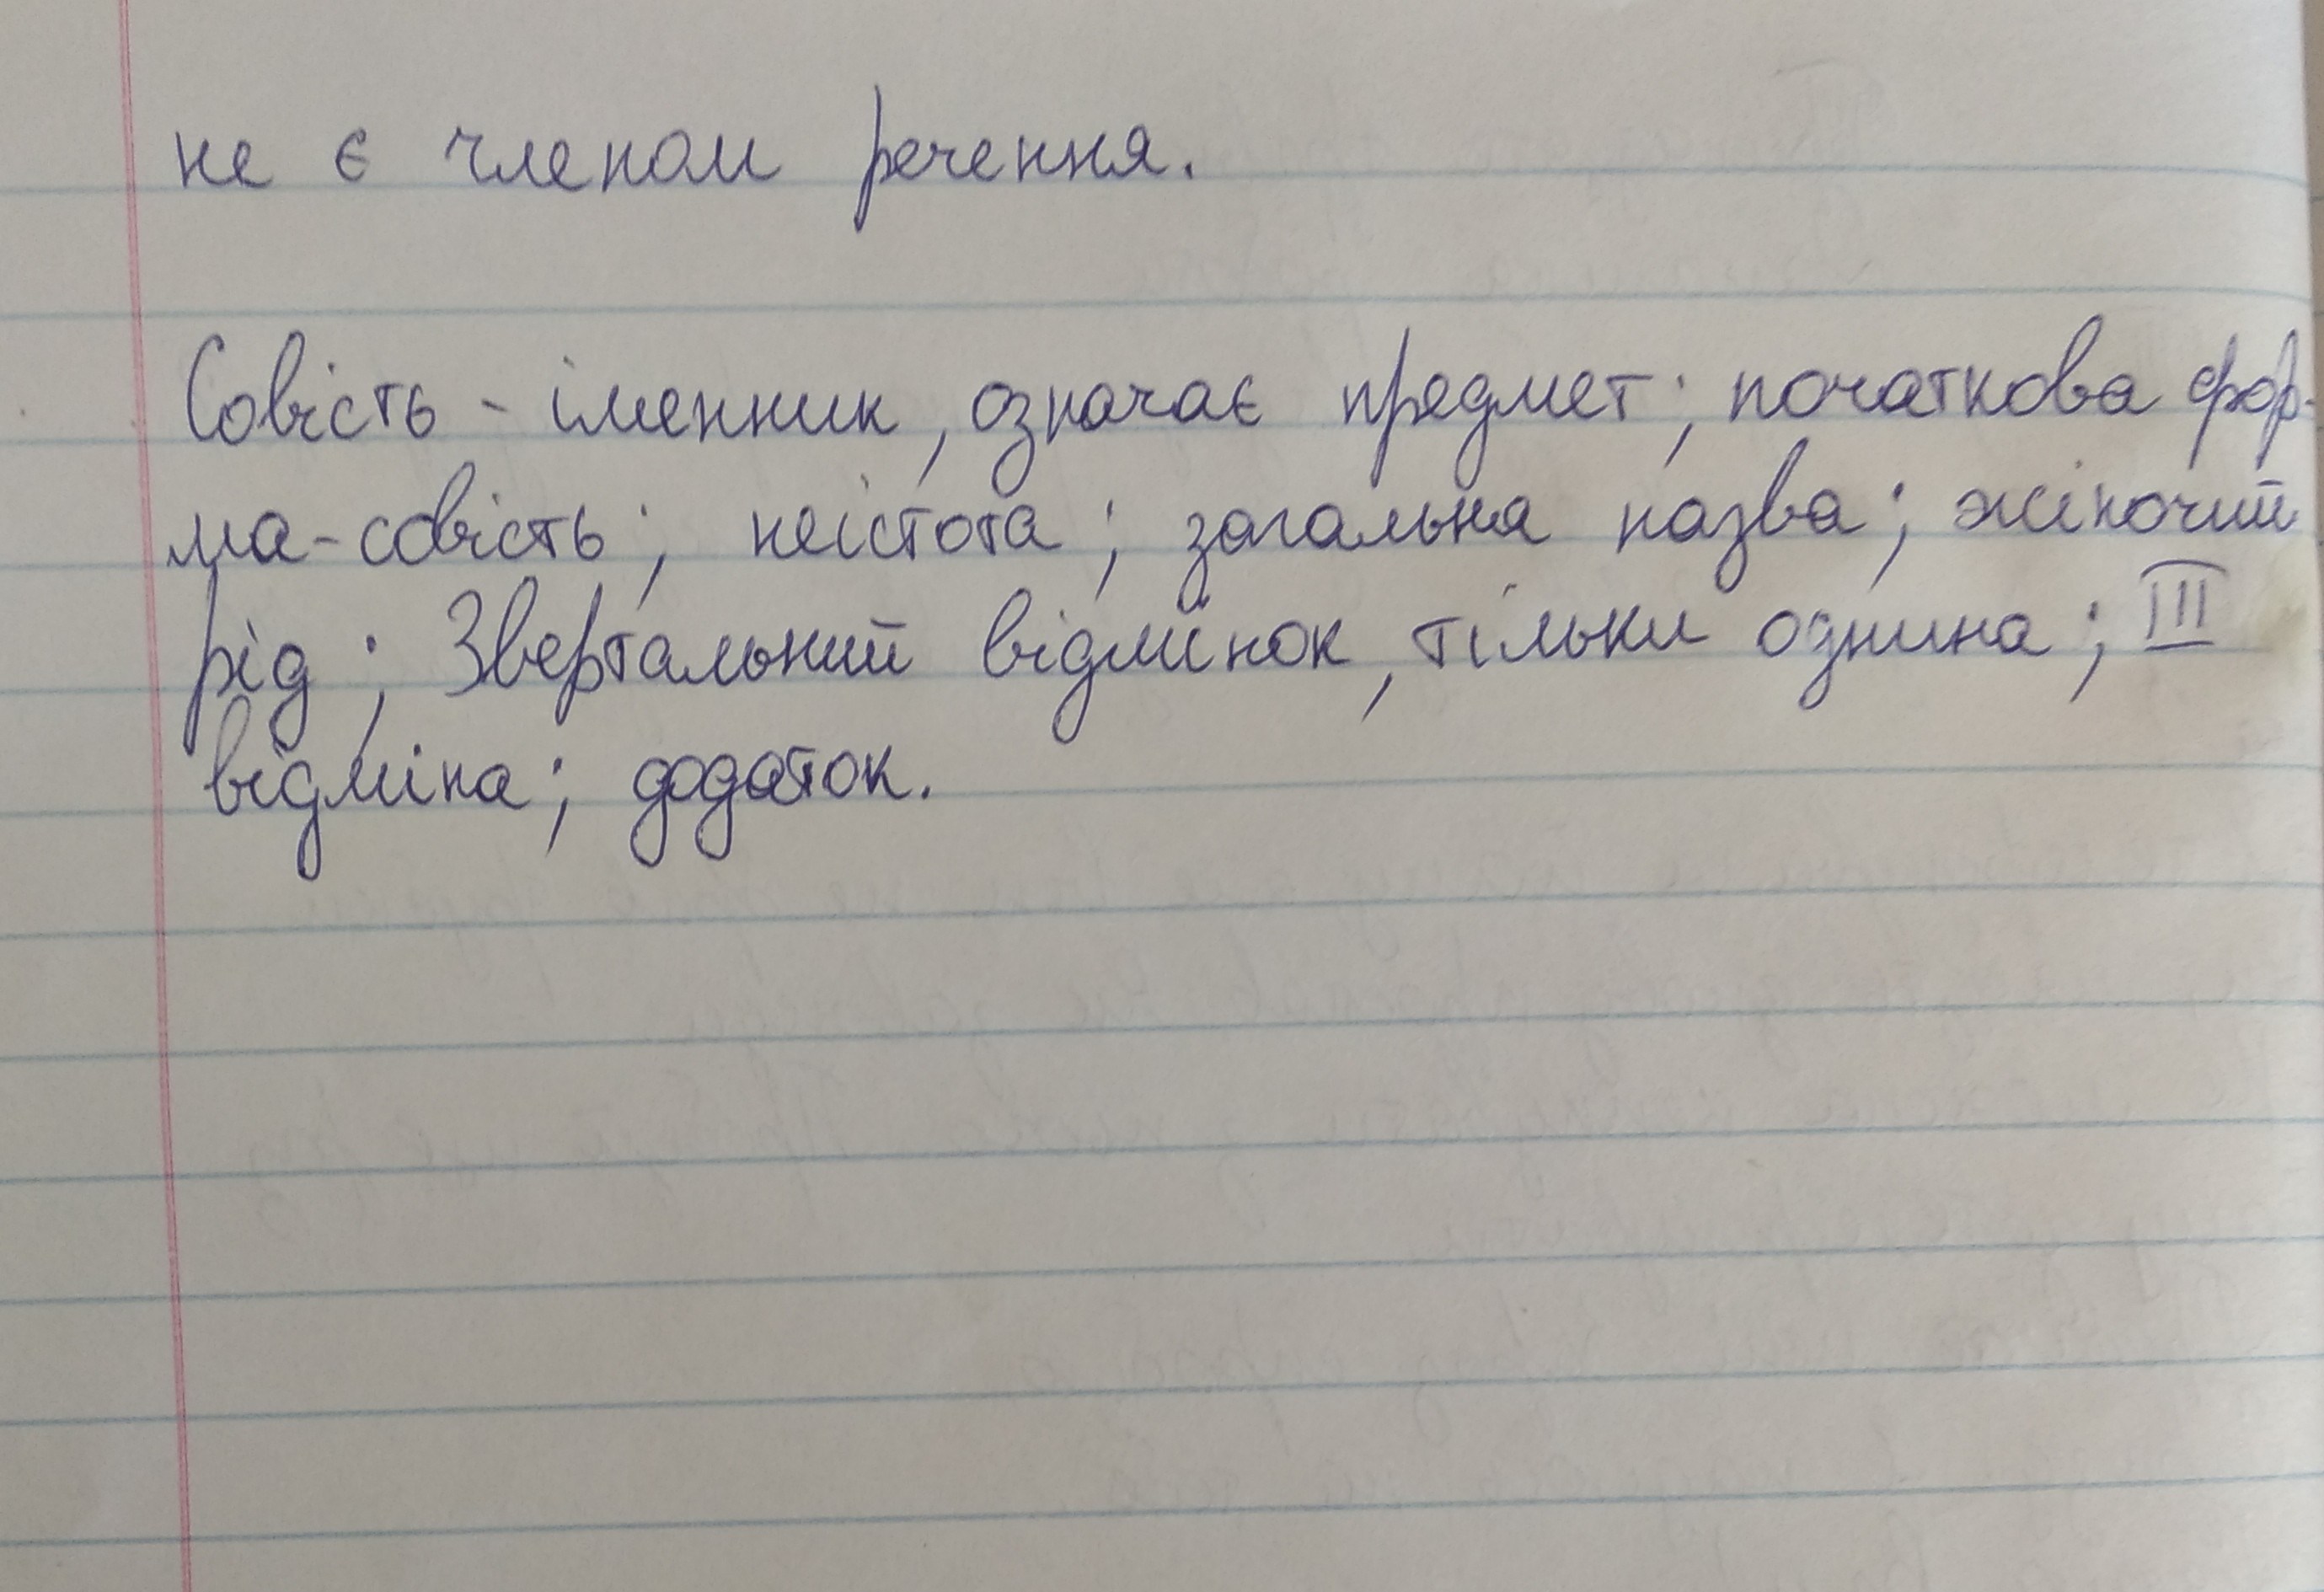 не є членом речення.
Совість - іменник, означає предмет; початкова фор-
ма-совість; неістота; загальна назва; жіночий
рід; Звертальний відмінок, тільки однина; III
відміна; додаток.